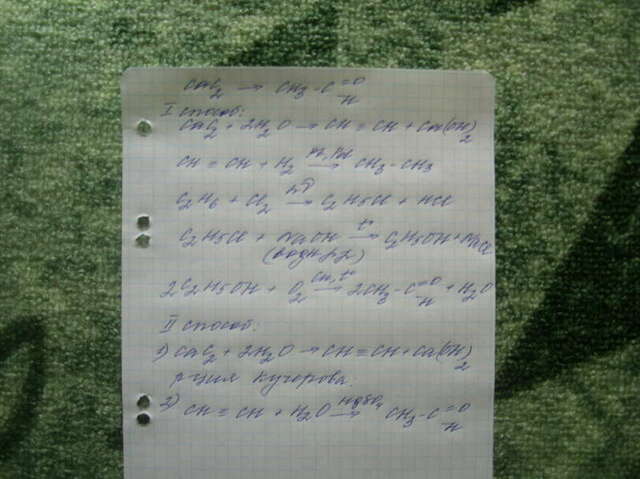 CaC2 → CH3-C=O
H
I способ:
CaC2 + 2H2O → CH≡CH + Ca(OH)2
CH≡CH + H2 → CH3-CH3
C2H6 + Cl2 →hν C2H5Cl + HCl
C2H5Cl + NaOH →t° C2H5OH + NaCl
(водн р-р)
2C2H5OH + O2 →Cu, t° 2CH3-C=O + H2O
H
II способ:
1) CaC2 + 2H2O → CH≡CH + Ca(OH)2
р-ция Кучерова:
2) CH≡CH + H2O →HgSO4 CH3-C=O
H